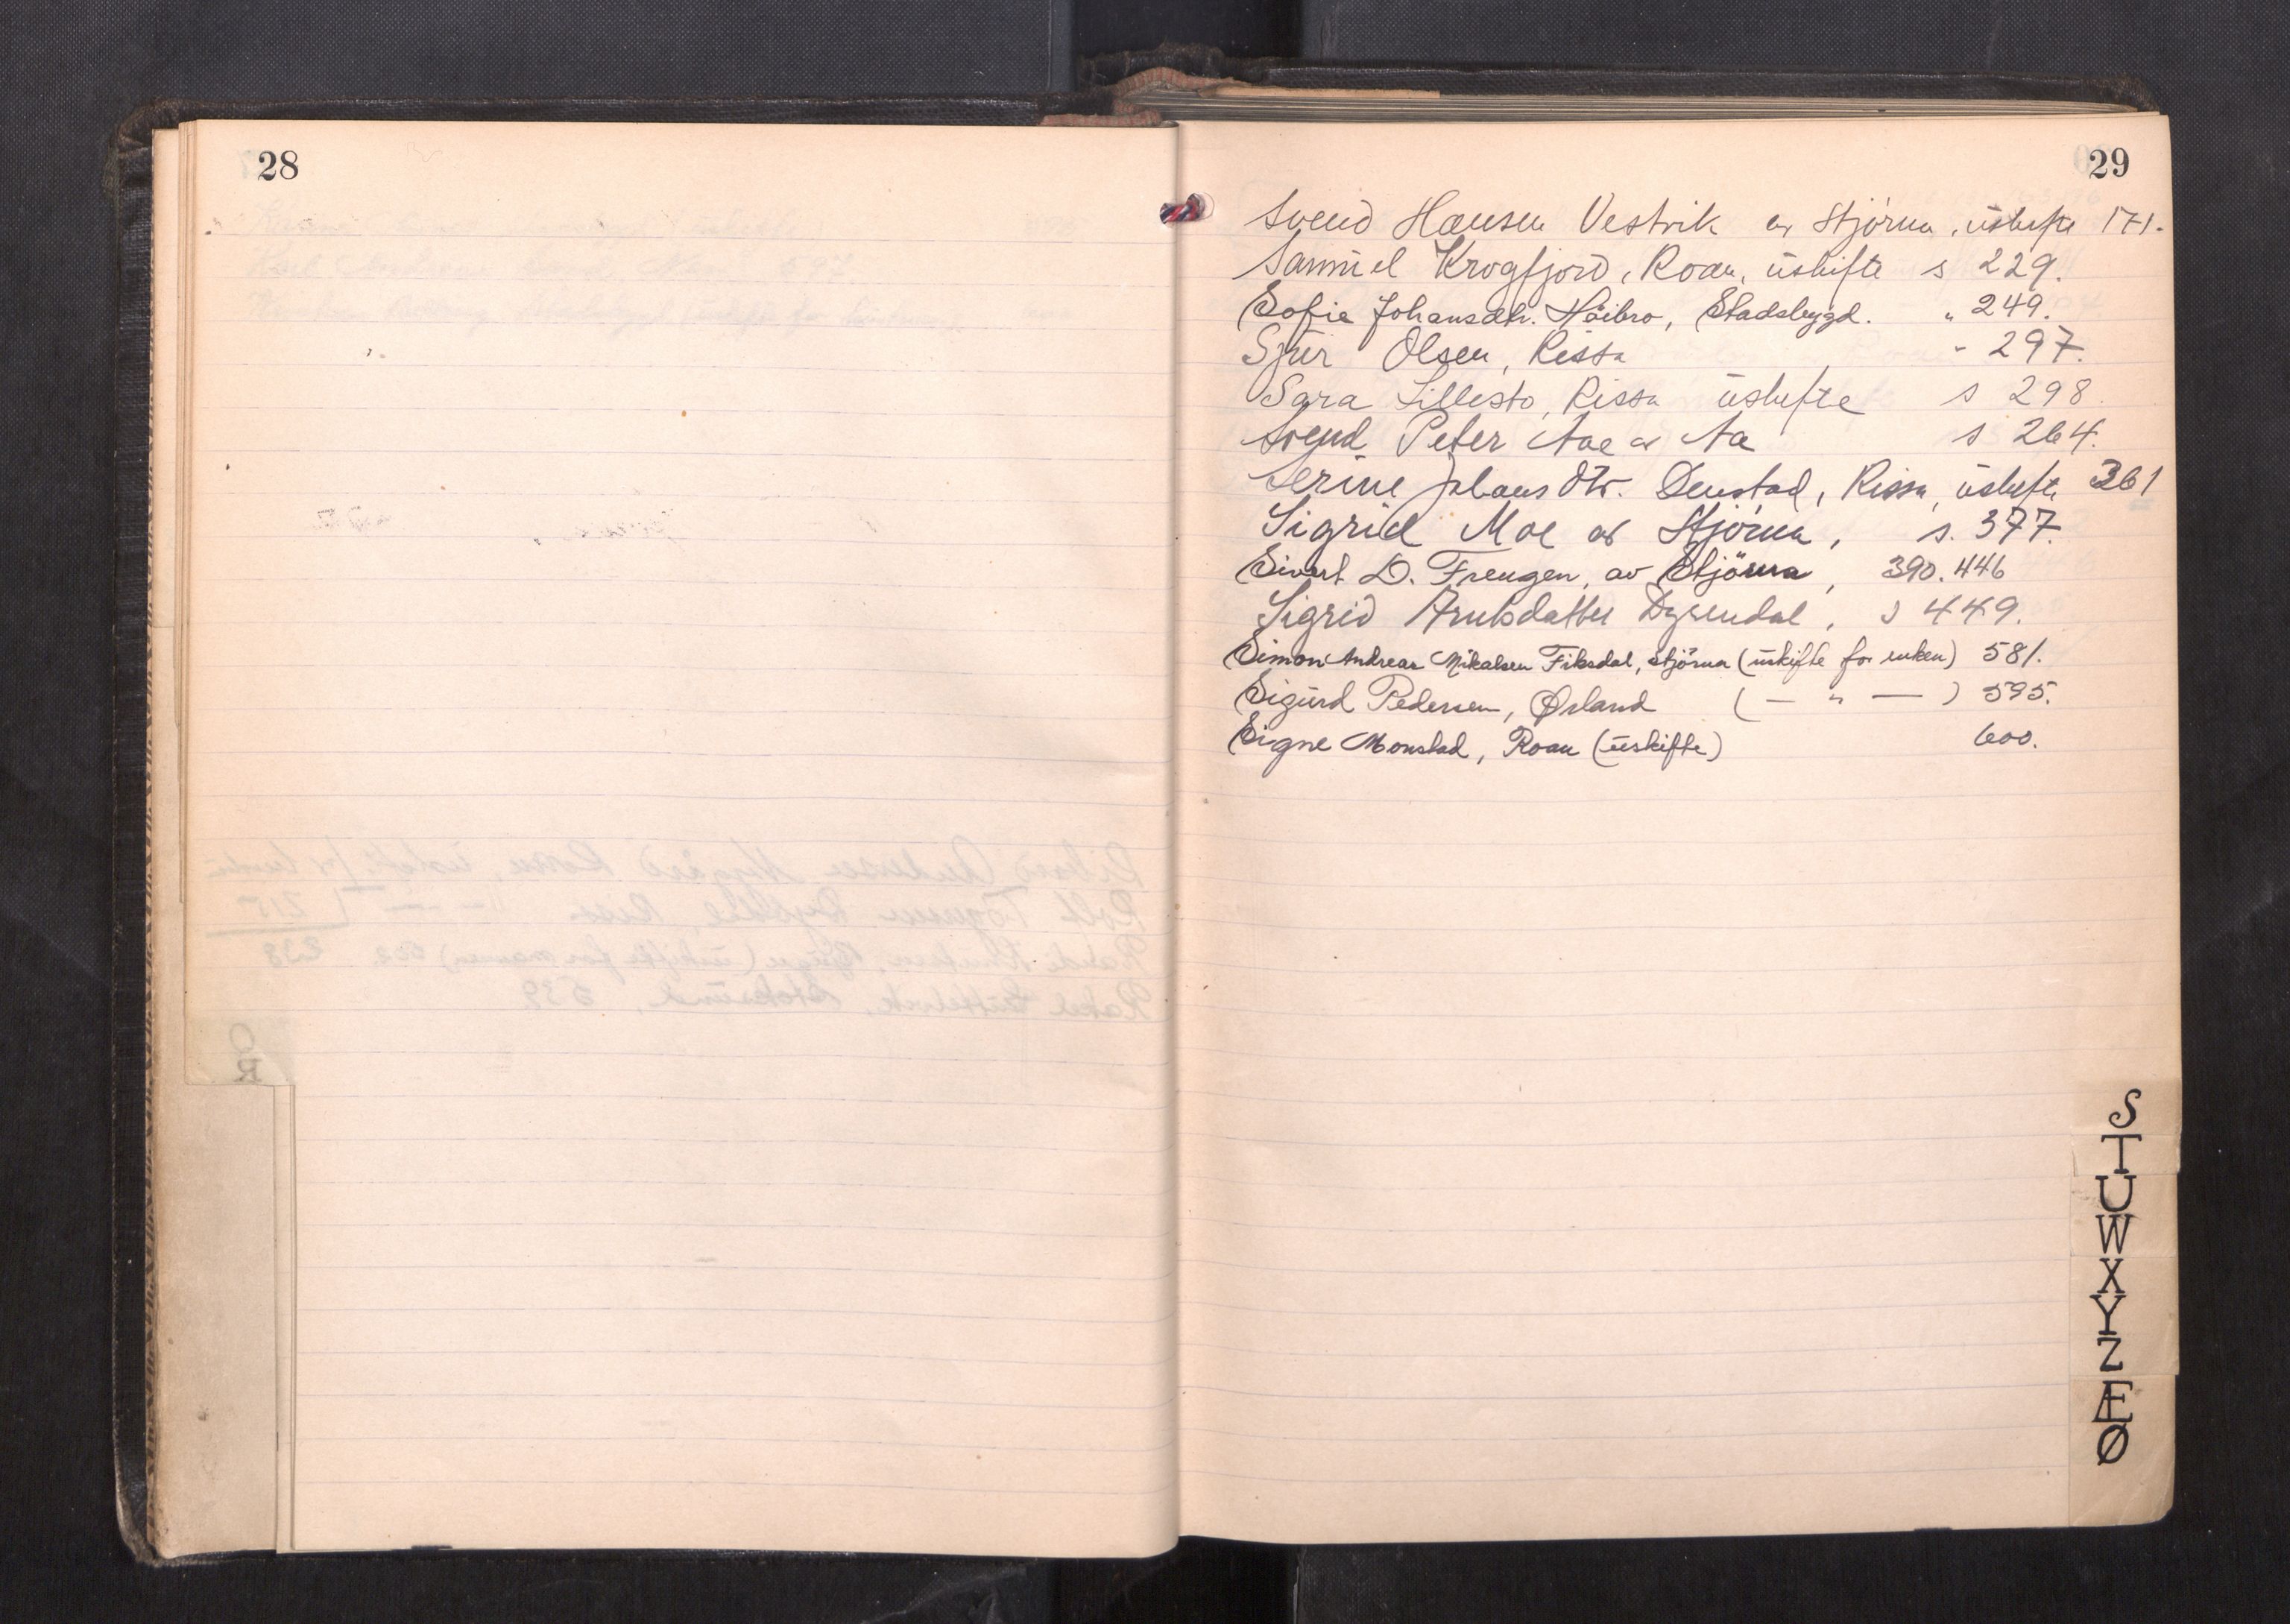 28
29
Svend Hansen Vestvik av Stjørna, uskifte 171.
Samuel Krogfjord, Roan, uskifte s 229.
Sofie Johansdtr. Höibro, Stadsbygd. " 249.
Sjur Olsen, Rissa - 297.
Sara Lillesto, Rissa uskifte s 298.
Svend Peter Aae av Aa s 264.
Serine Johansdtr. Denstad, Rissa, uskifte 361
Sigrid Moe av Stjørna, s. 377.
Sivert D. Frengen, av Stjörna, 390. 446
Sigrid Arntsdatter Dysendal, s 449.
Simon Andreas Mikalsen Fiksdal, Stjörna (uskifte for enken) 581.
Sigurd Pedersen, Ørland (— " —) 595.
Signe Monstad, Roan (uskifte) 600.
S
T
U
W
X
Y
Z
Æ
Ø